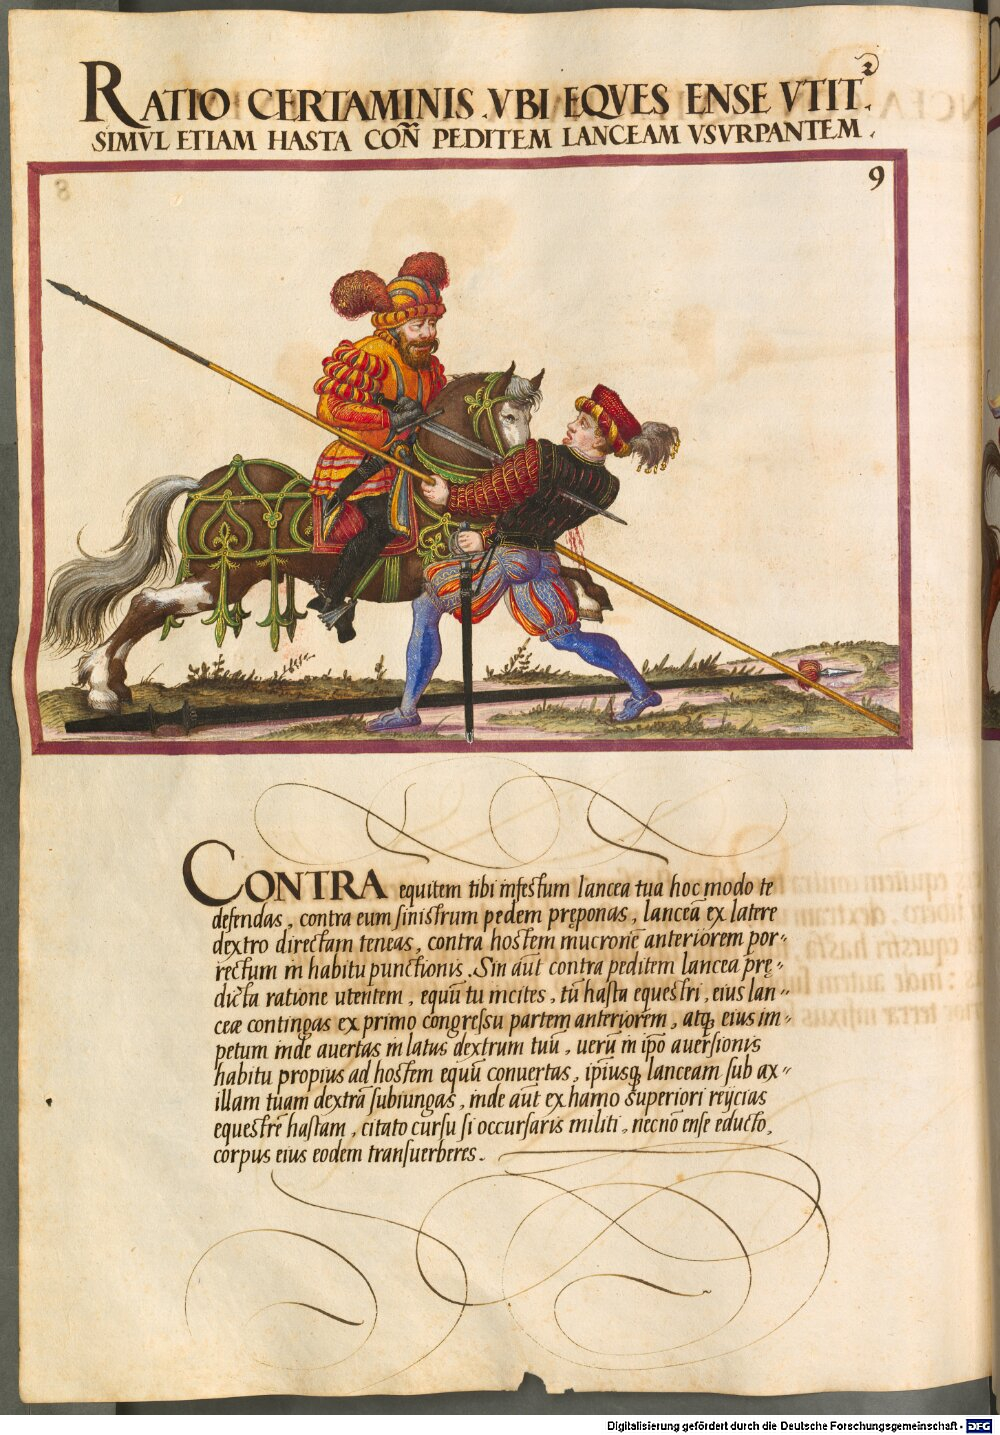 RATIO CERTAMINIS. VBI EQVES ENSE VTITᷣ.
SIMVL ETIAM HASTA COÑ PEDITEM LANCEAM VSVRPANTEM.
9
CONTRA equitem tibi infestum lancea tua hoc modo te
defendas, contra eum sinistrum pedem pręponas, lanceā ex latere
dextro directam teneas, contra hostem mucronē anteriorem por-
rectum in habitu punctionis. Sin aūt contra peditem lancea prę-
dicta ratione utentem, equū tu incites, tū hasta equestri, eius lan-
ceæ contingas ex primo congressu partem anteriorem, atq, eius im-
petum inde avertas in latus dextrum tuū, uerū in ipō aversionis
habitu propius ad hostem equū convertas, ipiusq, lanceam sub ax-
illam tuam dextrā subiungas, inde aūt ex hamo superiori reijcias
equestrē hastam, citato cursu si occursaris militi, necnō ense educto,
corpus eius eodem transuerberes.
Digitalisierung gefördert durch die Deutsche Forschungsgemeinschaft - DFG